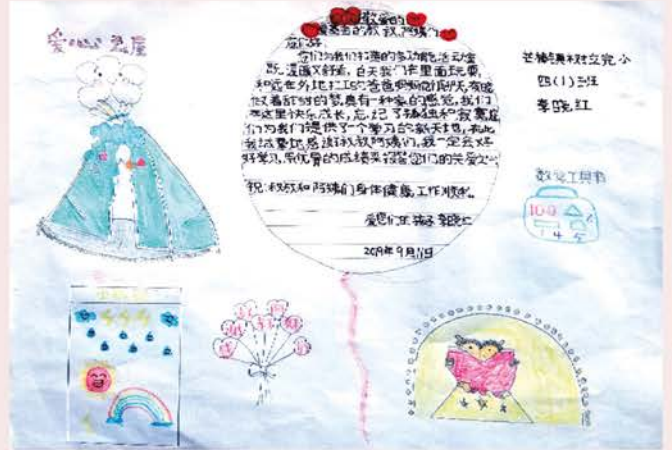 爱心小屋
敬爱的
叔叔、阿姨们:
您们好
您们为我们打造的多功能活动室
既温暖又舒适,白天我们在里面玩耍,
和远在外地打工的爸爸妈妈聊聊天,有
着甜甜的梦真有一种家的感觉,我们
在这里快乐成长,忘记了孤独和寂寞
们为我们提供了一个学习的新天地,在此
我诚挚地感谢叔叔阿姨们,我一定会好
好学习,用优异的成绩来报答您们的关爱
祝:叔叔和阿姨们身体健康,工作顺利。
爱您们的孩子
2019年9月11日
村立完小
四(1)班
李晓红
数学工具箱
100